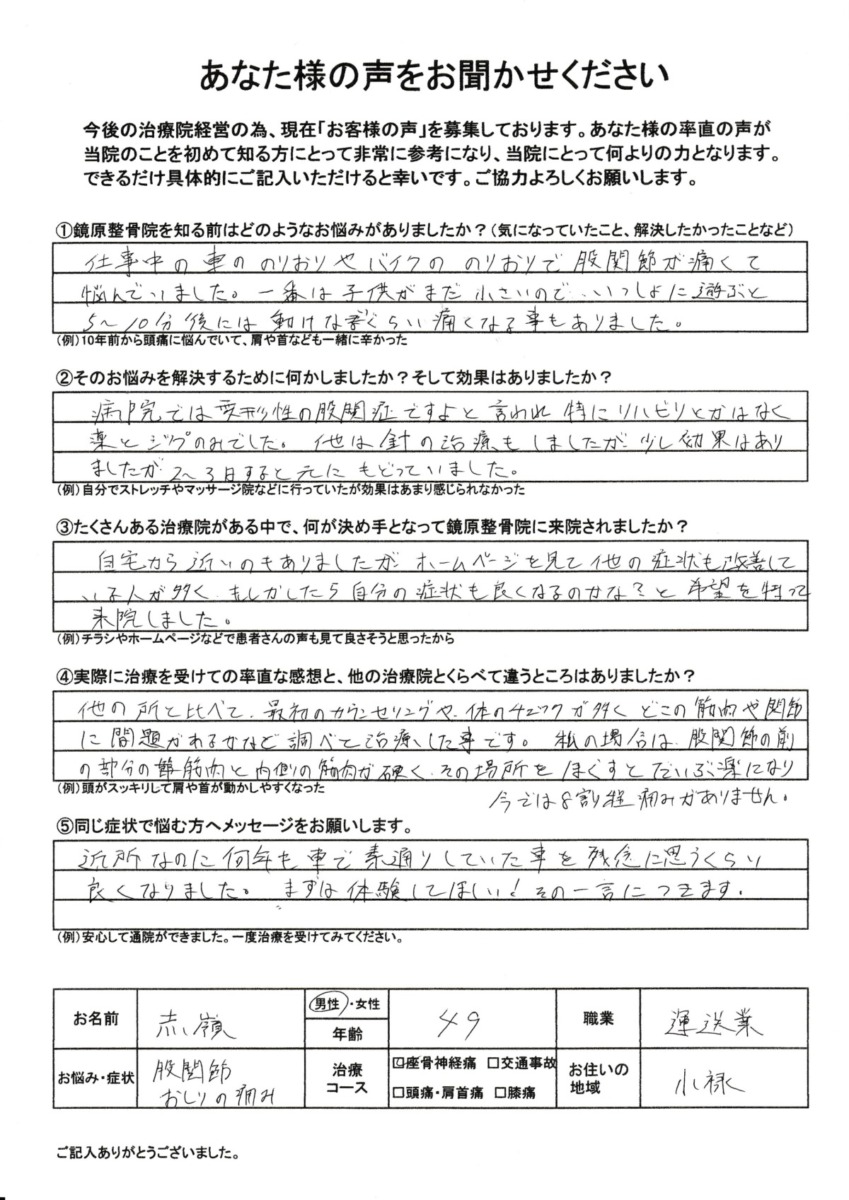 あなた様の声をお聞かせください
今後の治療院経営の為、現在「お客様の声」を募集しております。あなた様の率直の声が
当院のことを初めて知る方にとって非常に参考になり、当院にとって何よりの力となります。
できるだけ具体的にご記入いただけると幸いです。ご協力よろしくお願いします。
①鏡原整骨院を知る前はどのようなお悩みがありましたか？（気になっていたこと、解決したかったことなど）
仕事中の車ののりおりやバイクののりおりで股関節が痛くて
悩んでいました。一番は子供がまだ小さいので、いっしょに遊ぶと
5〜10分後には動けなぐらい痛くなる事もありました。
（例）10年前から頭痛に悩んでいて、肩や首なども一緒に辛かった
②そのお悩みを解決するために何かしましたか？そして効果はありましたか？
病院では変形性の股関症ですよと言われ特にリハビリとかはなく
薬とシップのみでした。他は針の治療もしましたが少し効果はあり
ましたが2〜3日すると元にもどっていました。
（例）自分でストレッチやマッサージ院などに行っていたが効果はあまり感じられなかった
③たくさんある治療院がある中で、何が決め手となって鏡原整骨院に来院されましたか？
自宅から近いのもありましたがホームページを見て他の症状も改善して
いる人が多く、もしかしたら自分の症状も良くなるのかな？と希望を持って
来院しました。
（例）チラシやホームページなどで患者さんの声も見て良さそうと思ったから
④実際に治療を受けての率直な感想と、他の治療院とくらべて違うところはありましたか？
他の所と比べて、最初のカウンセリングや、体のチェックが多くどこの筋肉や関節
に問題があるかなど調べて治療した事です。私の場合は、股関節の前
の部分の筋肉と内側の筋肉が硬く、その場所をほぐすとだいぶ楽になり
（例）頭がスッキリして肩や首が動かしやすくなった
今では8割程痛みがありません。
⑤同じ症状で悩む方へメッセージをお願いします。
近所なのに何年も車で素通りしていた事を残念に思うくらい
良くなりました。まずは体験してほしい！その一言につきます。
（例）安心して通院ができました。一度治療を受けてみてください。
お名前 赤嶺 男性・女性 年齢 49 職業 運送業
お悩み・症状 股関節 おしりの痛み 治療コース ☑座骨神経痛 □交通事故 □頭痛・肩首痛 □膝痛 お住いの地域 小禄
ご記入ありがとうございました。